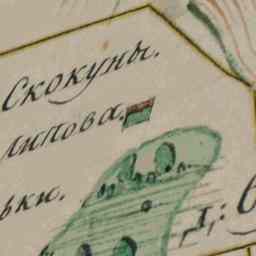 Скокуны.
липова.
ьки.